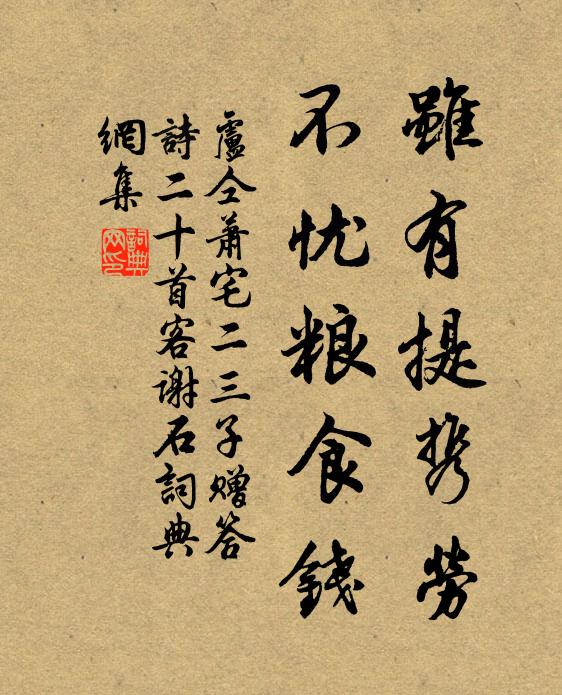 雖有提携勞
不忧粮食錢
盧仝萧宅二三子赠答
詩二十首客謝石詞典
網集
詞典網印